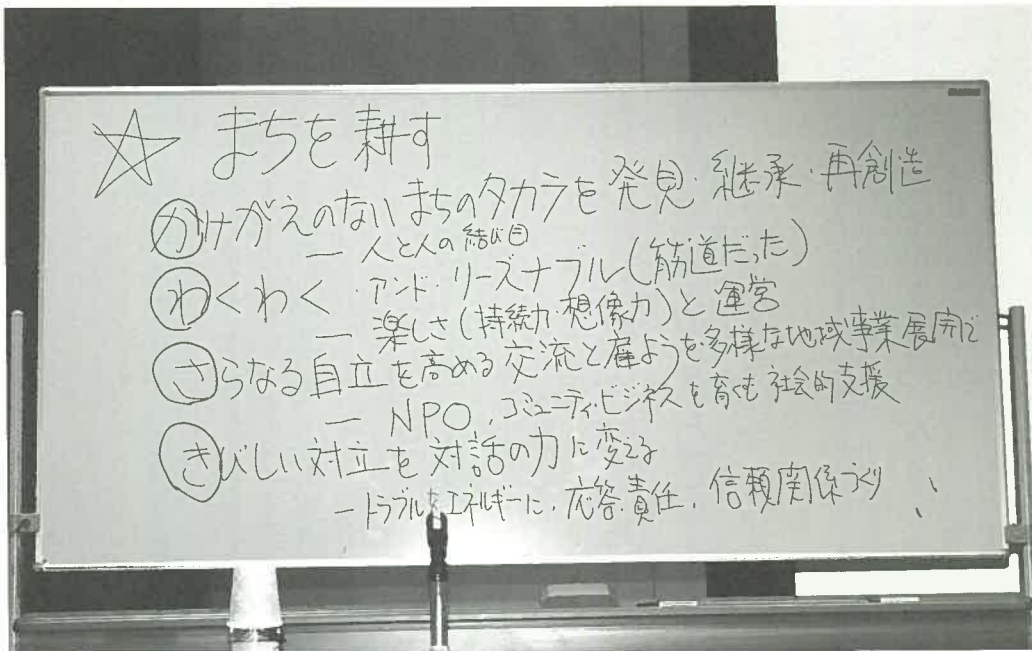 ☆ まちを耕す
かけがえのないまちのタカラを発見・継承・再創造
― 人と人の結び目
わくわく・アンド・リーズナブル(筋道だった)
― 楽しさ(持続力・想像力)と運営
さらなる自立を高める交流と雇ようを多様な地域事業展開で
― NPO, コミュニティ・ビジネスを育くむ社会的支援
きびしい対立を対話の力に変える
― トラブルをエネルギーに, 応答・責任, 信頼関係づくり